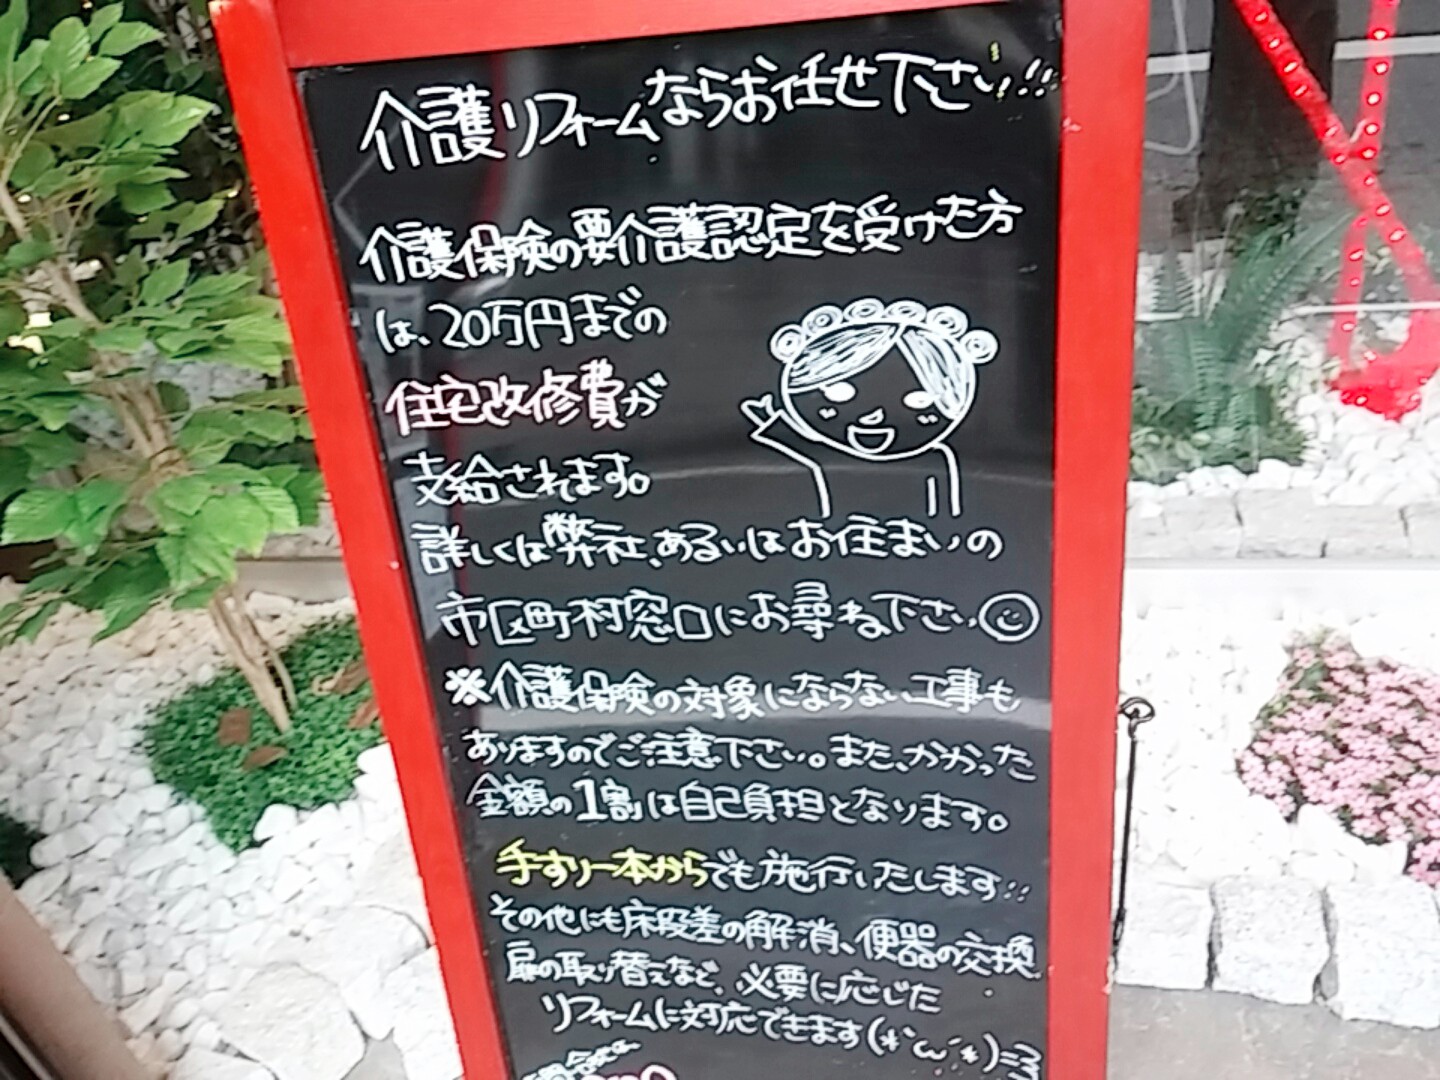 介護リフォームならお任せ下さい!!
介護保険の要介護認定を受けた方
は、20万円までの
住宅改修費が
支給されます。
詳しくは弊社、あるいはお住まいの
市区町村窓口にお尋ね下さい
※介護保険の対象にならない工事も
ありますのでご注意下さい。また、かかった
金額の1割は自己負担となります。
手すり一本からでも施行いたします!!
その他にも床段差の解消、便器の交換
扉の取り替えなど、必要に応じた
リフォームに対応できます(*´ω`*)=3